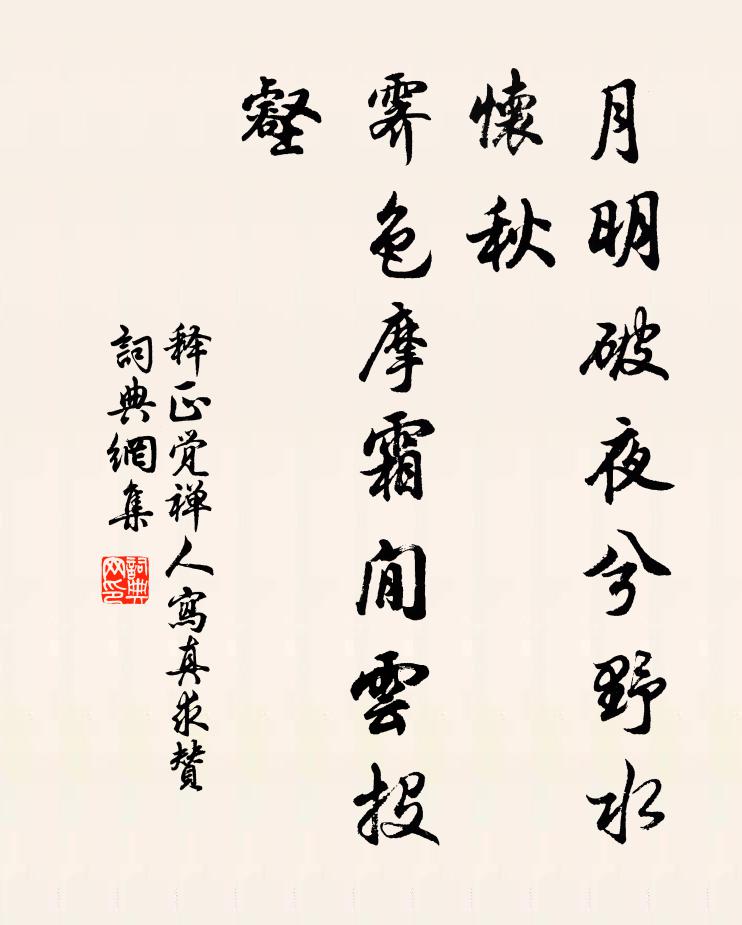 月明破夜兮野水
懷秋
霽色摩霜閒雲投
壑
释正觉禅人寫真求贊
詞典網集
詞典网印